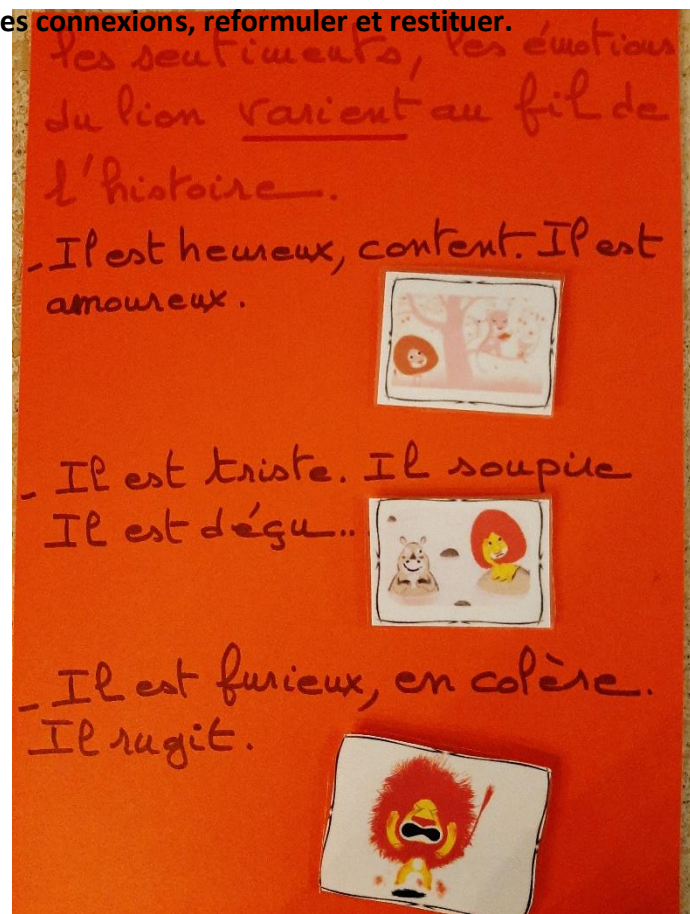 es connexions, reformuler et restituer.
les sentiments, les émotions
du lion varient au fil de
l'histoire.
- Il est heureux, content. Il est
amoureux.
- Il est triste. Il soupire
Il est déçu...
- Il est furieux, en colère.
Il rugit.